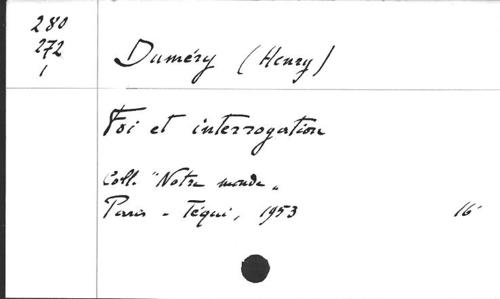 280
272
1
Duméry (Henry)
Foi et interrogation
Coll. "Notre monde"
Paris - Téqui, 1953 16°